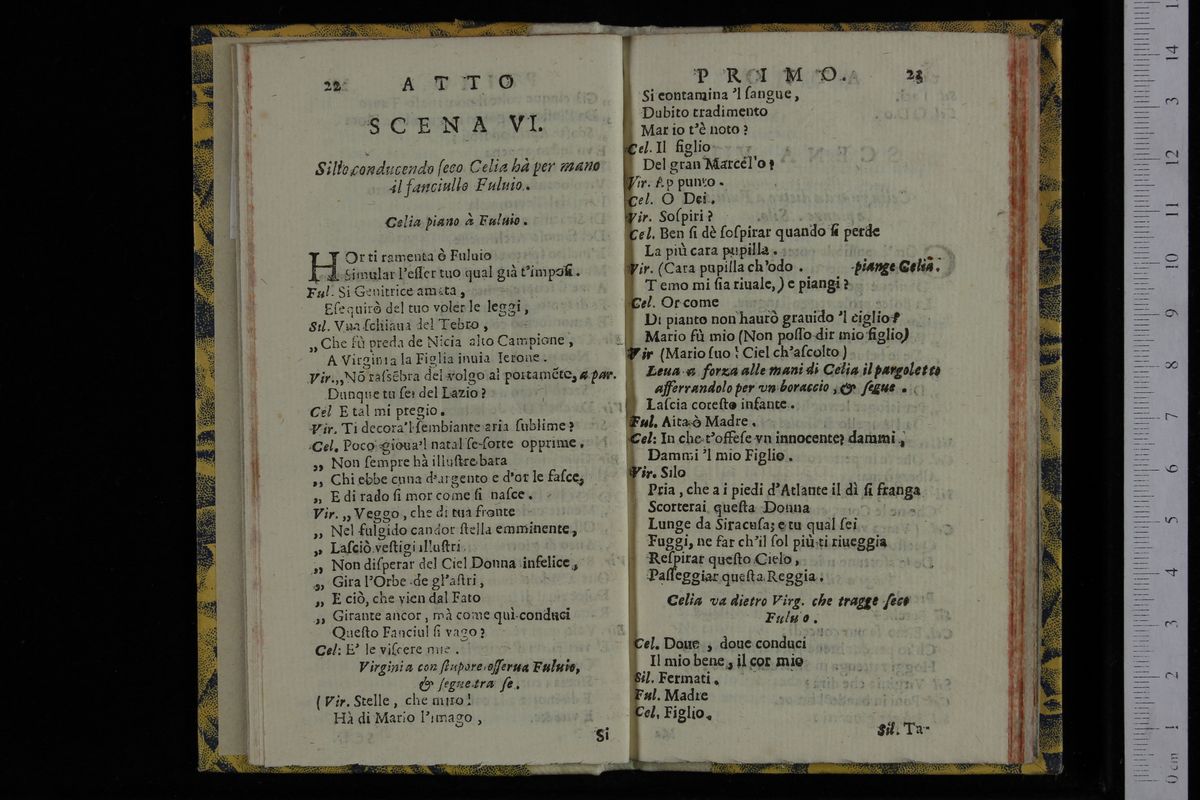 22 ATTO
SCENA VI.
Silo conducendo ſeco Celia hà per mano
il fanciullo Fuluio.
Celia piano à Fuluio.
HOr ti ramenta ò Fuluio
Simular l'eſſer tuo qual già t'impoſi.
Ful. Si Genitrice amata,
Eſequirò del tuo voler le leggi,
Sil. Vna ſchiaua del Tebro,
„Che fù preda de Nicia alto Campione,
A Virginia la Figlia inuia Ierone.
Vir.„Nõ raſsẽbra del volgo al portamẽto, a par.
Dunque tu ſei del Lazio?
Cel E tal mi pregio.
Vir. Ti decora'l ſembiante aria ſublime?
Cel. Poco gioua'l natal ſe ſorte opprime.
„ Non ſempre hà illuſtre bara
„ Chi ebbe cuna d'argento e d'or le faſce,
„ E di rado ſi mor come ſi naſce.
Vir. „Veggo, che di tua fronte
„ Nel fulgido candor ſtella emminente,
„ Laſciò veſtigi illuſtri
„ Non diſperar del Ciel Donna infelice,
„ Gira l'Orbe de gl'aſtri,
„ E ciò, che vien dal Fato
„ Girante ancor, mà come quì conduci
Queſto Fanciul ſi vago?
Cel: E' le viſcere mie.
Virginia con ſtupore oſſerua Fuluio,
& ſegue tra ſe.
(Vir. Stelle, che miro!
Hà di Mario l'imago,
Si
PRIMO. 23
Si contamina 'l ſangue,
Dubito tradimento
Mario t'è noto?
Cel. Il figlio
Del gran Marcello?
Vir. Ap punto.
Cel. O Dei.
Vir. Soſpiri?
Cel. Ben ſi dè ſoſpirar quando ſi perde
La più cara pupilla.
Vir. (Cara pupilla ch'odo. piange Celia.
Temo mi ſia riuale,) e piangi?
Cel. Or come
Di pianto non haurò grauido 'l ciglio?
Mario fù mio (Non poſſo dir mio figlio)
Vir (Mario ſuo! Ciel ch'aſcolto)
Leua a forza alle mani di Celia il pargoletto
afferrandolo per vn boraccio, & ſegue.
Laſcia coteſto infante.
Ful. Aita ò Madre.
Cel: In che t'offeſe vn innocente? dammi,
Dammi 'l mio Figlio.
Vir. Silo
Pria, che a i piedi d'Atlante il dì ſi franga
Scorterai queſta Donna
Lunge da Siracuſa; e tu qual ſei
Fuggi, ne far ch'il ſol più ti riueggia
Reſpirar queſto Cielo,
Paſſeggiar queſta Reggia.
Celia va dietro Virg. che tragge ſeco
Fuluio.
Cel. Doue, doue conduci
Il mio bene, il cor mio
Sil. Fermati.
Ful. Madre
Cel. Figlio.
Sil. Ta-
0 cm 1 2 3 4 5 6 7 8 9 10 11 12 13 14
1 2 3